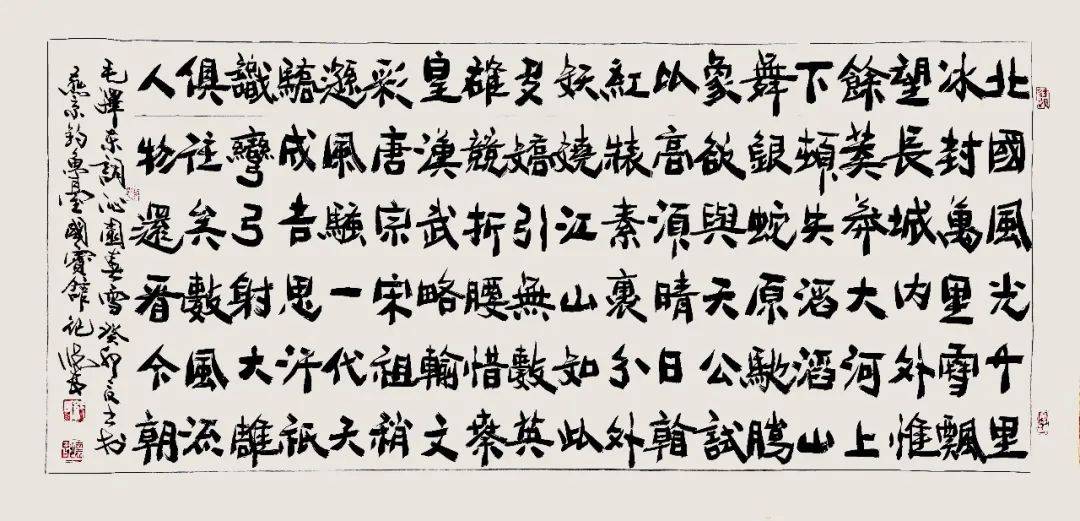 北國風光千里
冰封萬里雪飄
望長城內外惟
餘莽莽大河上
下頓失滔滔山
舞銀蛇原馳臘
象欲與天公試
比高須晴日看
紅裝素裹分外
妖嬈江山如此
多嬌引無數英
雄競折腰惜秦
皇漢武略輸文
彩唐宗宋祖稍
遜風騷一代天
驕成吉思汗祇
識彎弓射大雕
俱往矣數風流
人物還看今朝
毛澤東詞沁園春雪癸卯
燕京釣魚臺國賓館記